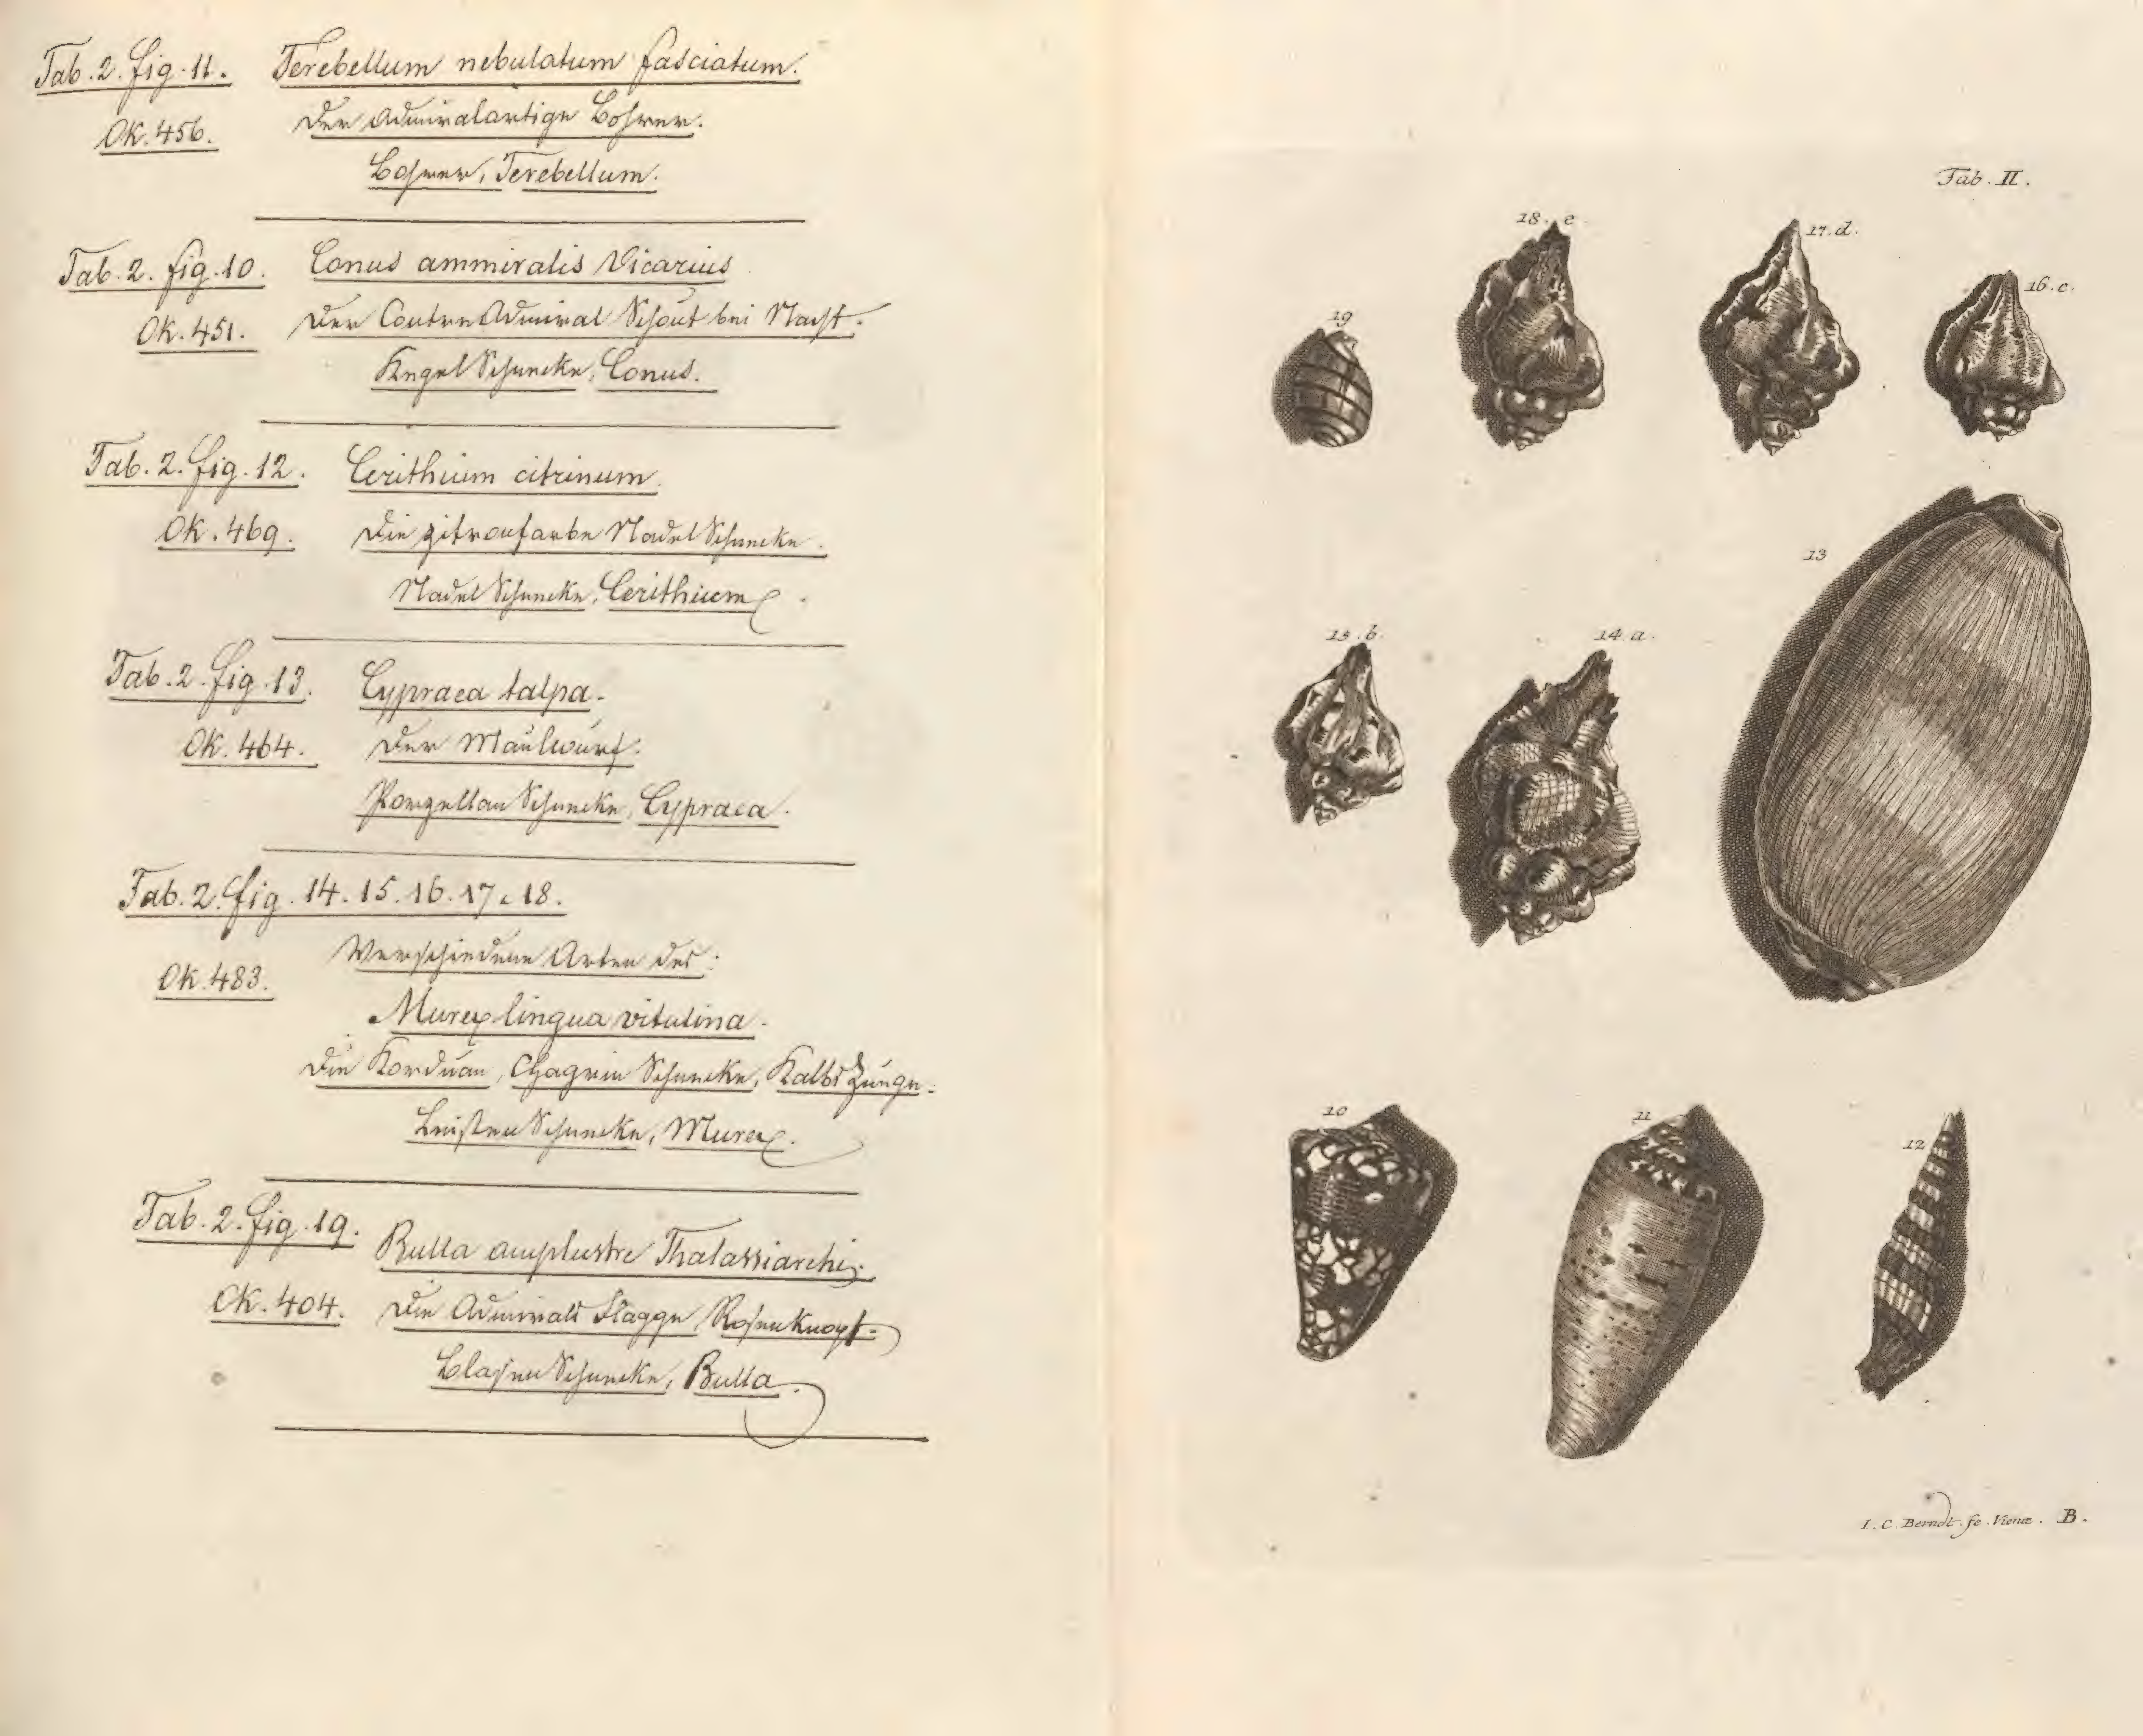 Tab. 2. fig. 11. Terebellum nebulatum fasciatum.
Ok. 456. Der Admiralartige Bohrer.
Bohrer, Terebellum.
Tab. 2. fig. 10. Conus ammiralis Vicarius
Ok. 451. Der ContreAdmiral Schout bei Nacht.
KegelSchnecke, Conus.
Tab. 2. fig. 12. Cerithium citrinum.
Ok. 469. Die zitronfarbe NadelSchnecke.
NadelSchnecke, Cerithium.
Tab. 2. fig. 13. Cypraea talpa.
Ok. 464. Der Maulwurf.
PorzellanSchnecke, Cypraea.
Tab. 2. fig. 14. 15. 16. 17. 18.
Verschiedene Arten des:
Ok. 483.
Murex lingua vitulina.
Die Korduan, Chagrin Schnecke, KalbsZunge.
LeistenSchnecke, Murex.
Tab. 2. fig. 19. Bulla amplustre Thalassiarchi.
Ok. 404. Die Admirals Flagge, Rosenknopf.
BlasenSchnecke, Bulla.
Tab. II.
18. e
17. d.
16. c.
19
13
15. b.
14. a.
10
11
12
I. C. Berndt. fe. Vienæ. B.